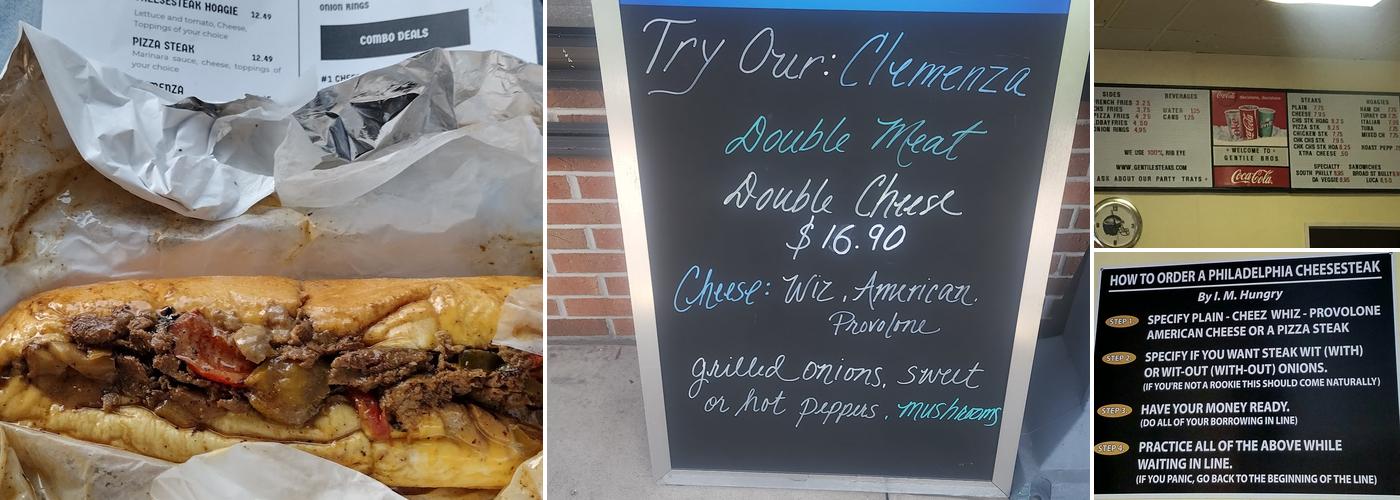 CHEESESTEAK HOAGIE 12.49
Lettuce and tomato, Cheese,
Toppings of your choice
PIZZA STEAK 12.49
Marinara sauce, cheese, toppings of
your choice
ONION RINGS
COMBO DEALS
Try Our: Clemenza
Double Meat
Double Cheese
$16.90
Cheese: Wiz, American,
Provolone
grilled onions, sweet
or hot peppers, mushrooms
SIDES
BEVERAGES
FRENCH FRIES 3.25
PIZZA FRIES 4.25
ONION RINGS 4.95
WATER 1.25
CANS 1.25
WE USE 100% RIB EYE
WWW.GENTILESTEAKS.COM
ASK ABOUT OUR PARTY TRAYS
Coca-Cola
WELCOME TO
GENTILE BROS
Coca-Cola
STEAKS
PLAIN 7.75
CHEESE 7.95
CHS STK HOAG 8.25
PIZZA STK 8.25
CHICKEN STK 7.75
CHK CHS STK 7.95
CHK CHS STK HOA 8.25
XTRA CHEESE .50
HOAGIES
HAM CH
TURKEY CH
ITALIAN
TUNA
MIXED CH
ROAST PEPP
SPECIALTY SANDWICHES
SOUTH PHILLY 8.95
BROAD ST BULLY
DA VEGGIE 8.95
LUCA
HOW TO ORDER A PHILADELPHIA CHEESESTEAK
By I. M. Hungry
STEP 1 SPECIFY PLAIN - CHEEZ WHIZ - PROVOLONE
AMERICAN CHEESE OR A PIZZA STEAK
STEP 2 SPECIFY IF YOU WANT STEAK WIT (WITH)
OR WIT-OUT (WITH-OUT) ONIONS.
(IF YOU'RE NOT A ROOKIE THIS SHOULD COME NATURALLY)
STEP 3 HAVE YOUR MONEY READY.
(DO ALL OF YOUR BORROWING IN LINE)
STEP 4 PRACTICE ALL OF THE ABOVE WHILE
WAITING IN LINE.
(IF YOU PANIC, GO BACK TO THE BEGINNING OF THE LINE)